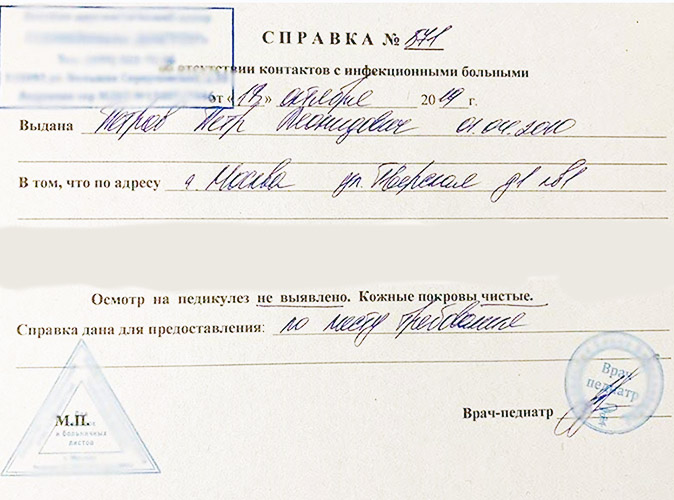 СПРАВКА № 571
об отсутствии контактов с инфекционными больными
от «13» октября 2019 г.
Выдана Петров Петр Леонидович 01.04.2010
В том, что по адресу г. Москва ул. Тверская д1 кв1
Осмотр на педикулез не выявлено. Кожные покровы чистые.
Справка дана для предоставления: по месту требования
Врач
педиатр
М.П.
и больничных
листов
Врач-педиатр